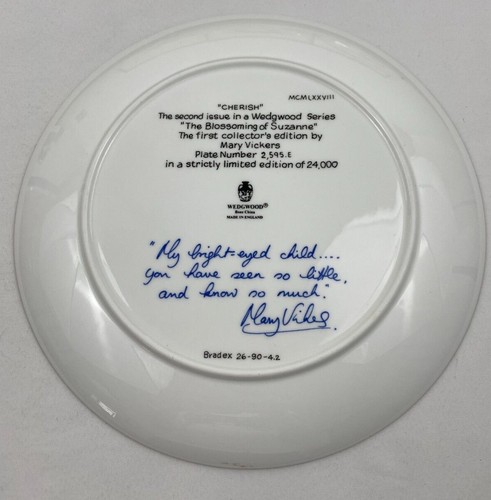 MCMLXXVIII
"CHERISH"
The second issue in a Wedgwood Series
"The Blossoming of Suzanne"
The first collector's edition by
Mary Vickers
Plate Number 2,595.E
in a strictly limited edition of 24,000
WEDGWOOD®
Bone China
MADE IN ENGLAND
"My bright-eyed child....
you have seen so little,
and know so much."
Mary Vickers
Bradex 26-90-4.2